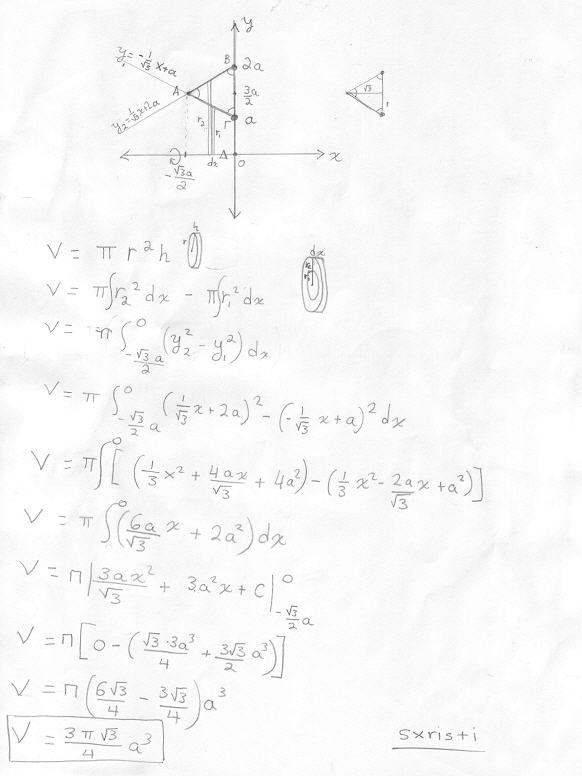 y
y₁ = -1/√3 x+a
B 2a
A
3a/2
√3
y₂ = 1/√3 x+2a
r₂ r₁ Γ a
1
dx Δ 0 x
-√3a/2
V = π r² h
h
r
dx
V = π∫r₂² dx - π∫r₁² dx
V = π ∫_{-√3a/2}^{0} (y₂² - y₁²) dx
V = π ∫_{-√3/2 a}^{0} (1/√3 x + 2a)² - (-1/√3 x + a)² dx
V = π∫^{0} [ (1/3 x² + 4ax/√3 + 4a²) - (1/3 x² - 2a/√3 x + a²) ]
V = π ∫^{0} (6a/√3 x + 2a²) dx
V = π | 3ax²/√3 + 3a²x + C |_{-√3/2 a}^{0}
V = π [ 0 - ( √3·3a³/4 + 3√3/2 a³ ) ]
V = π ( 6√3/4 - 3√3/4 ) a³
V = 3π√3/4 a³
sxristi